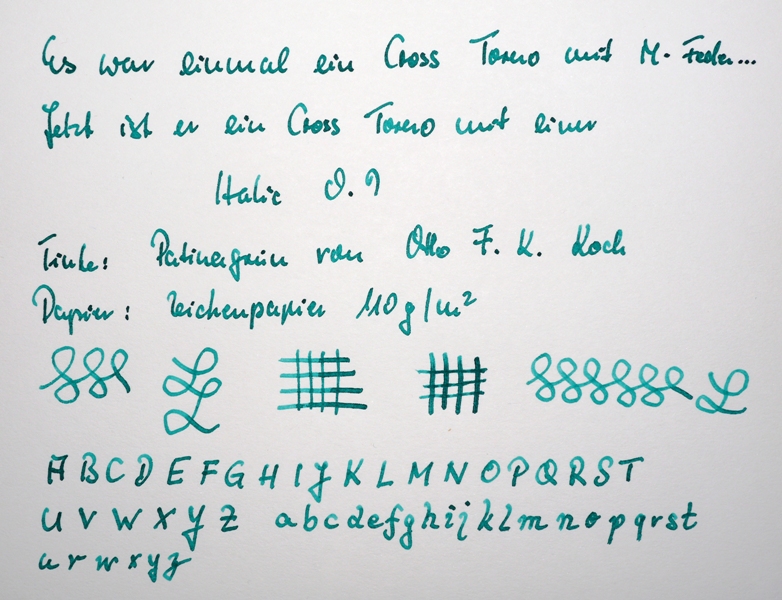 Es war einmal ein Cross Torero mit M-Feder...
Jetzt ist er ein Cross Torero mit einer
Italic 0.9
Tinte: Patinagrün von Otto F. K. Koch
Papier: Zeichenpapier 110g/m²
A B C D E F G H I J K L M N O P Q R S T
U V W X Y Z a b c d e f g h i j k l m n o p q r s t
u v w x y z